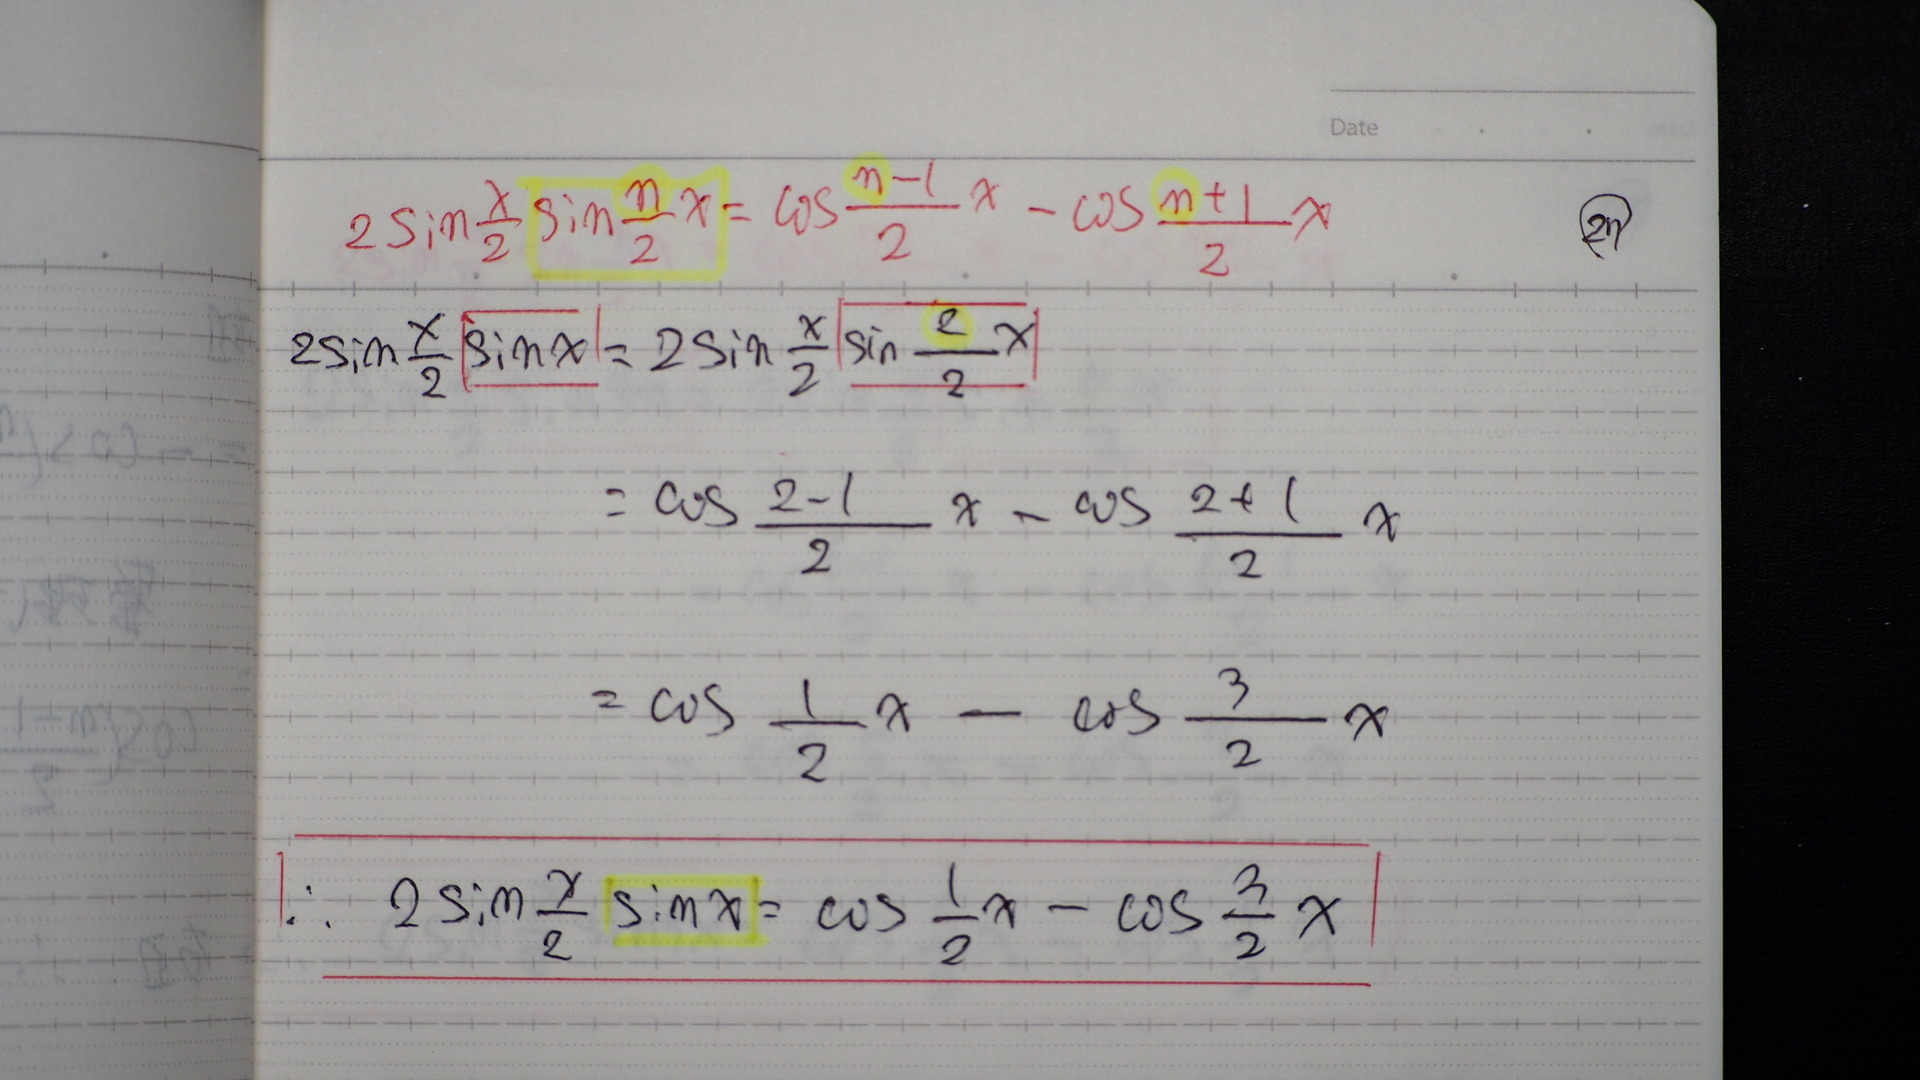 Date
2 sin x/2 sin n/2 x = cos n-1/2 x - cos n+1/2 x
2 sin x/2 sin x = 2 sin x/2 sin 2/2 x
= cos 2-1/2 x - cos 2+1/2 x
= cos 1/2 x - cos 3/2 x
∴ 2 sin x/2 sin x = cos 1/2 x - cos 3/2 x